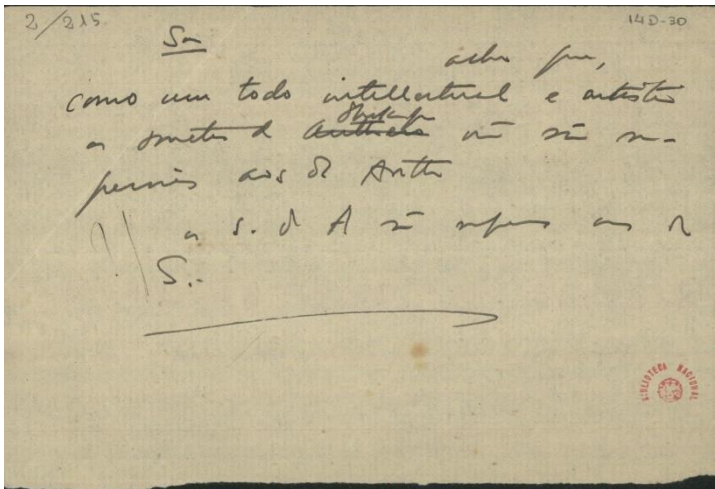 2/215.
14D-30
So
acho que,
como um todo intellectual e artistico
os sonetos de Anthero Shakespe não são su-
periores aos de Anth
os s. de A são superiores aos de
S.-
BIBLIOTECA NACIONAL